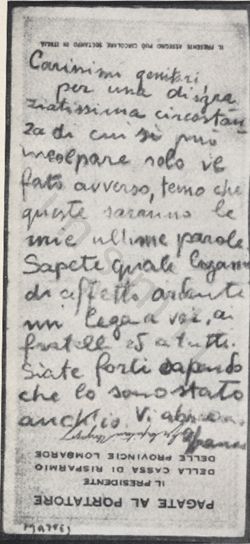 IL PRESENTE ASSEGNO PUÒ CIRCOLARE SOLTANTO IN ITALIA
Carissimi genitori
per una disgra
ziatissima circostan
za di cui si può
incolpare solo il
fato avverso, temo che
queste saranno le
mie ultime parole
Sapete quale legame
di affetto ardente
mi lega a voi, ai
fratelli ed a tutti.
Siate forti sapendo
che lo sono stato
anch'io. Vi abbraccio
Franco
PAGATE AL PORTATORE
IL PRESIDENTE
DELLA CASSA DI RISPARMIO
DELLE PROVINCIE LOMBARDE